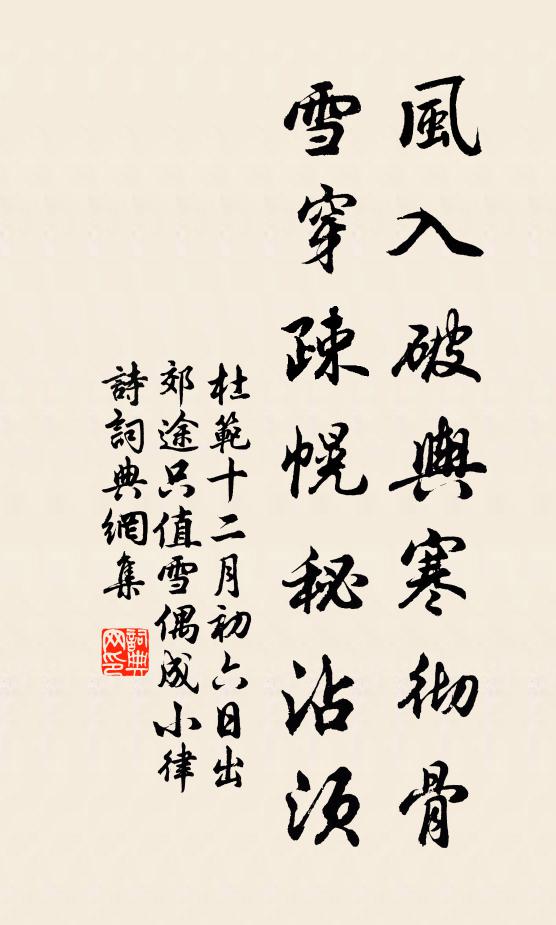 風入破輿寒彻骨
雪穿疎幌秘沾须
杜範十二月初六日出
郊途只值雪偶成小律
詩詞典網集
詞典网印